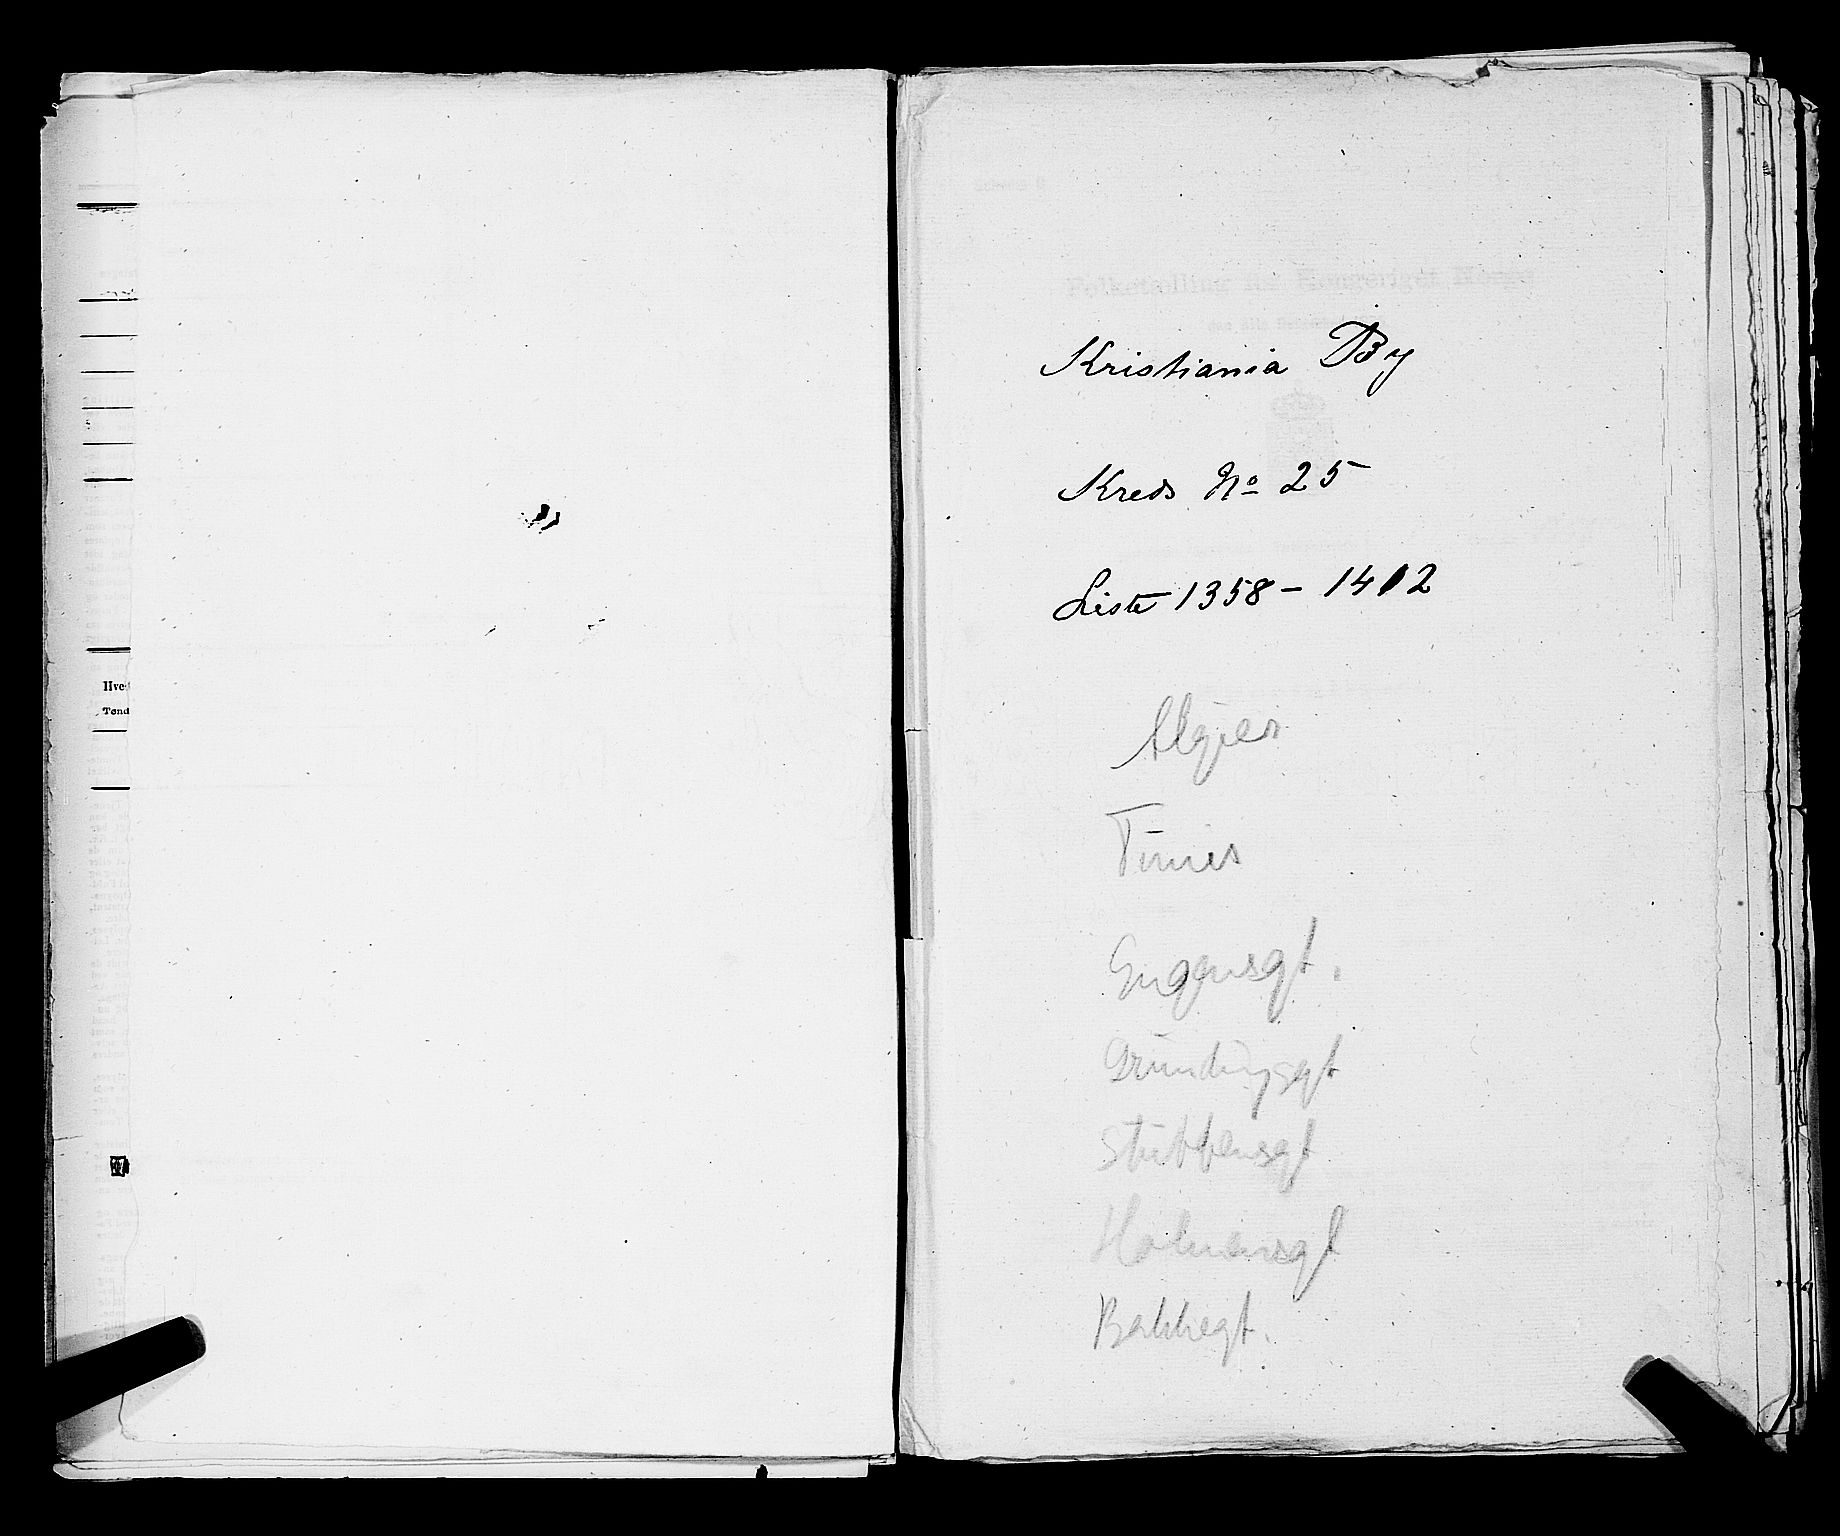 Hve
Tønd
Kristiania By
Kreds No 25
Liste 1358 - 1412
Algier
Tunis
Enggusgt.
Gründingsgt
Stuttensgt
Holmensgt
Bakkegt.